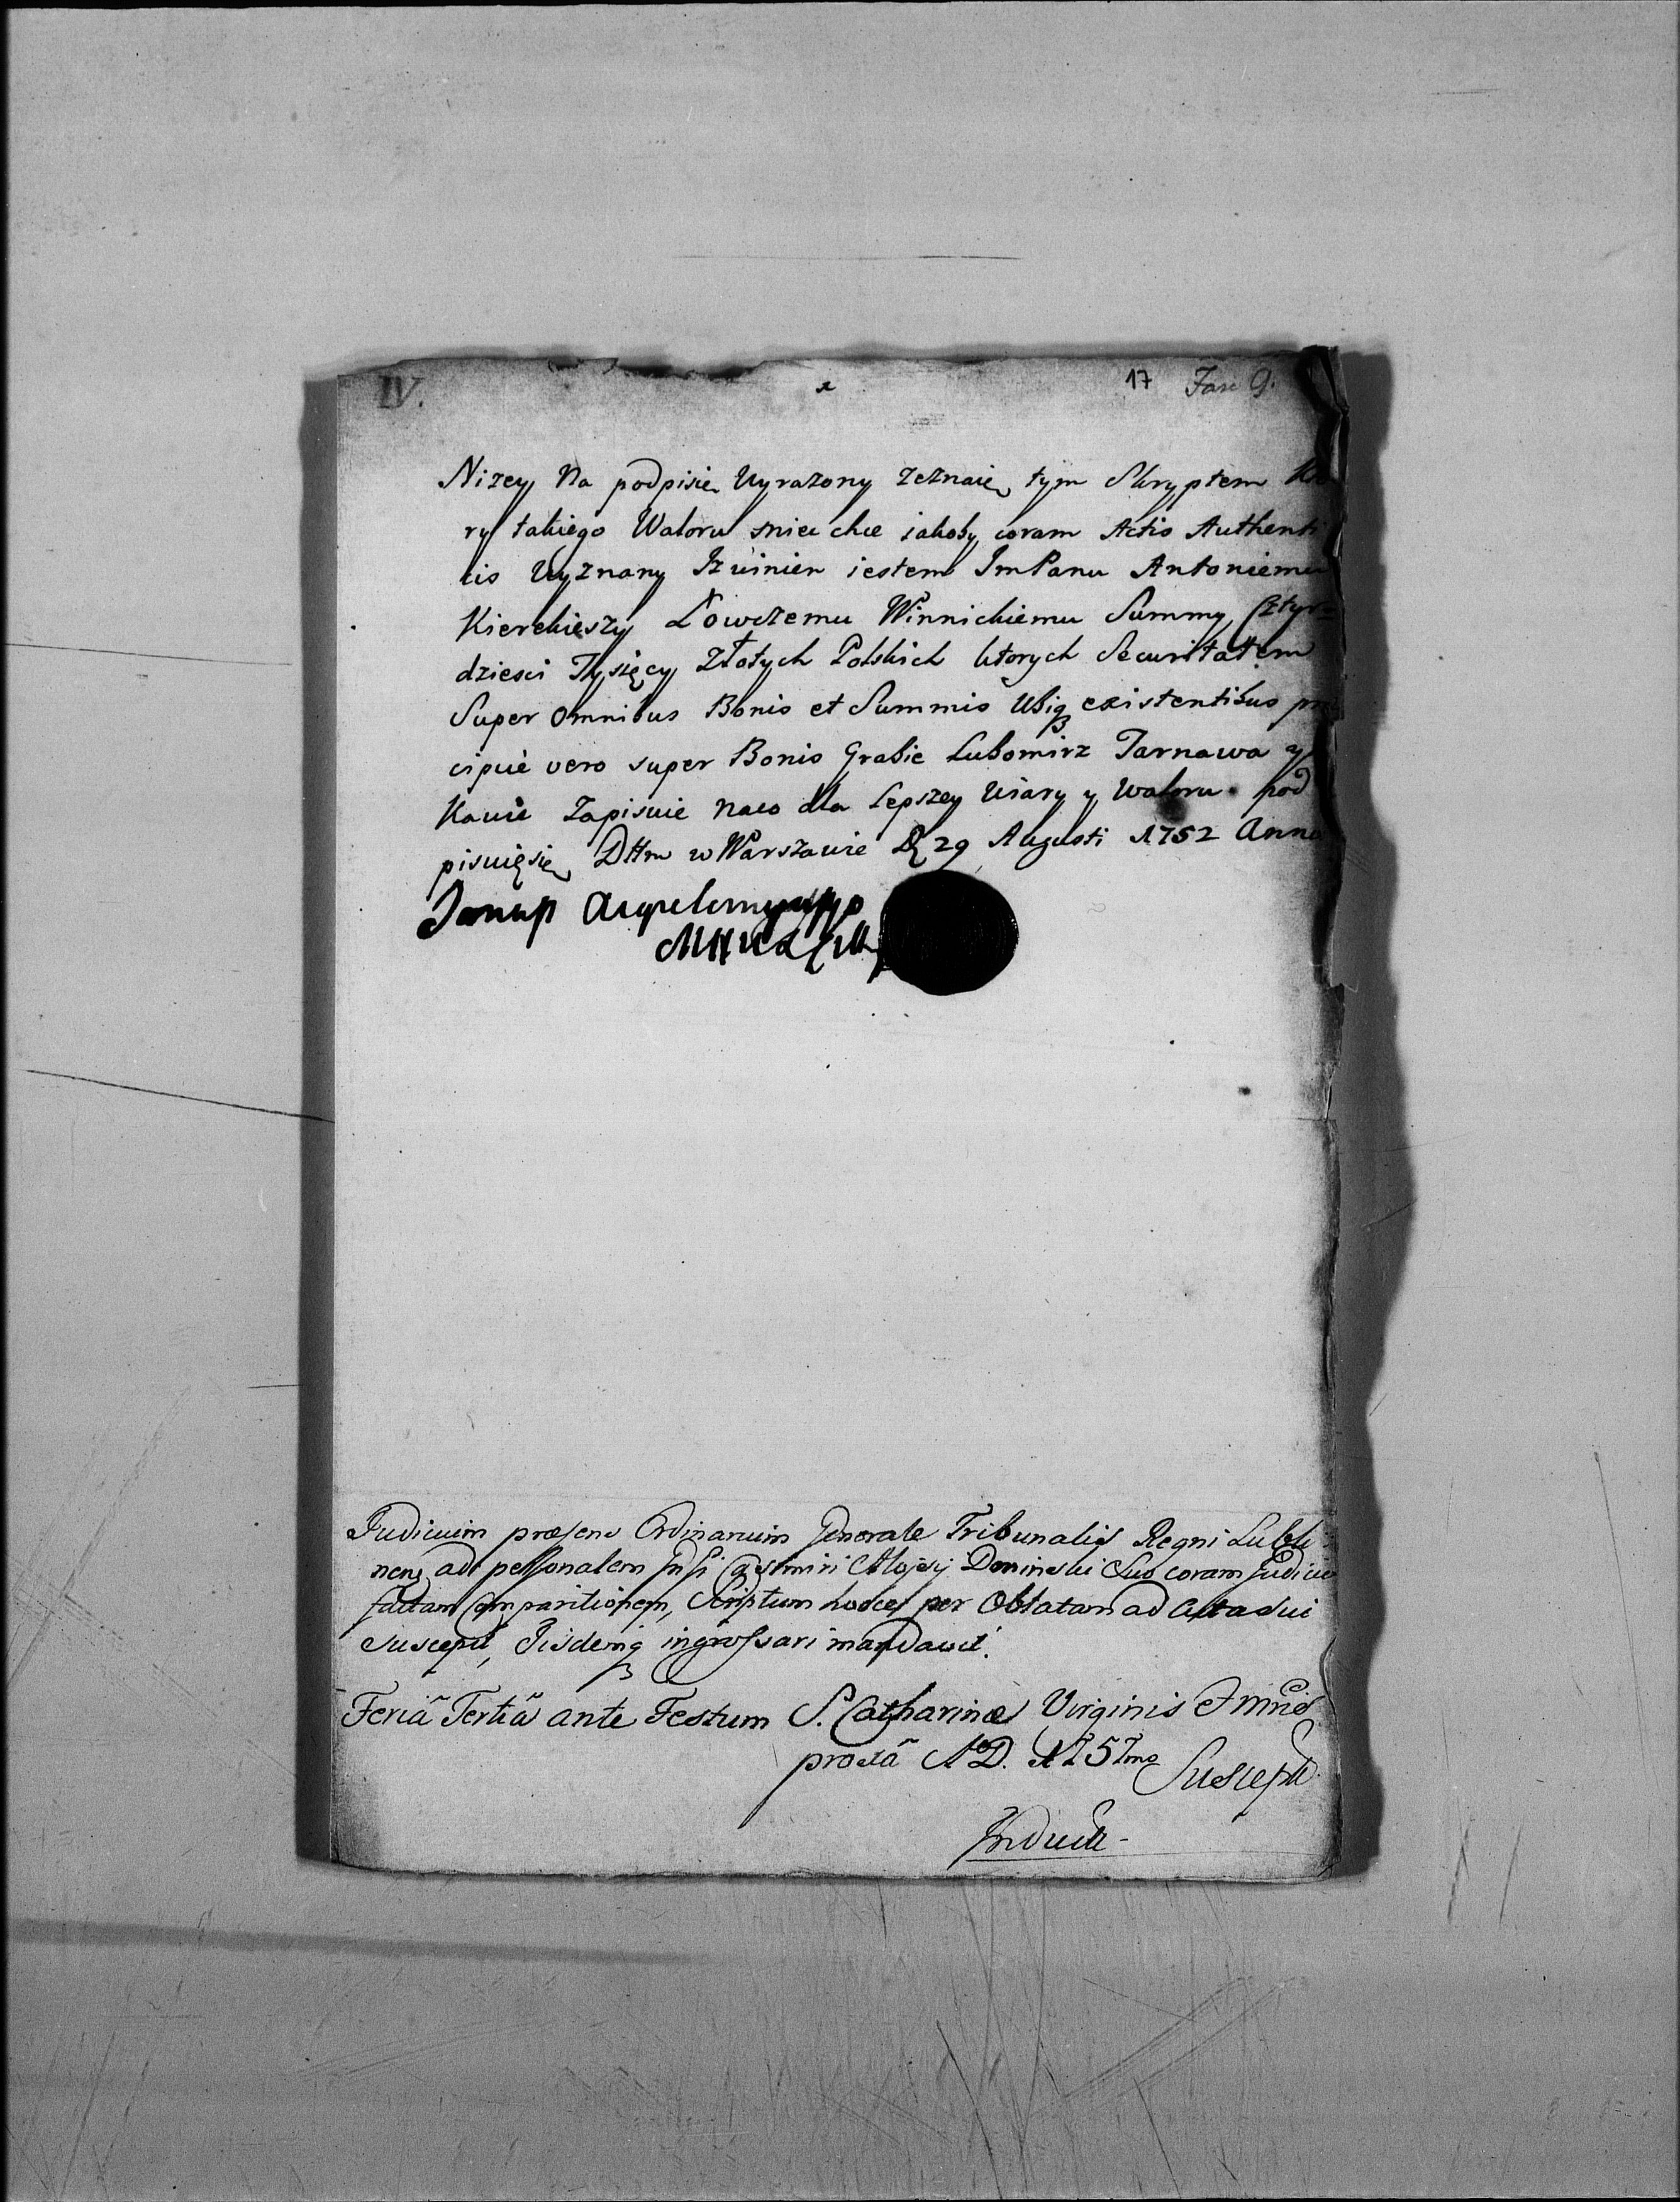 IV.
17 Fasc 9.
Nizey Na podpisie Wyrazony zeznaię tym Skryptem
ry takiego Waloru miec chce iakoby coram Actis Authenti
cis Wyznany Iz winien iestem ImPanu Antoniemu
Kierekieszy Łowczemu Winnickiemu Summy Cztyr=
dziesci Tysięcy Złotych Polskich ktorych Securitatem
Super Omnibus Bonis et Summis Ubiq existentibus
cipuè vero super Bonis Grabie Lubomirz Tarnawa y
Zapisuie naco dla Lepszey Wiary y waloru pod
pisuięsię Dttm w Warszawie D 29 Augusti 1752 Anno
Judicium præsens Ordinarium Generale Tribunalis Regni Lubli
nen ad personalem Casimiri Aloysij Deninski Suo coram Judicio
factam Comparitionem, Scriptum hocce per Oblatam ad Acta sui
suscepit, Iisdemq ingrossari mandavit.
Feriâ Tertiâ ante Festum S. Catharinæ Virginis et
proxâ A D. 1757mo Suscept
Induct